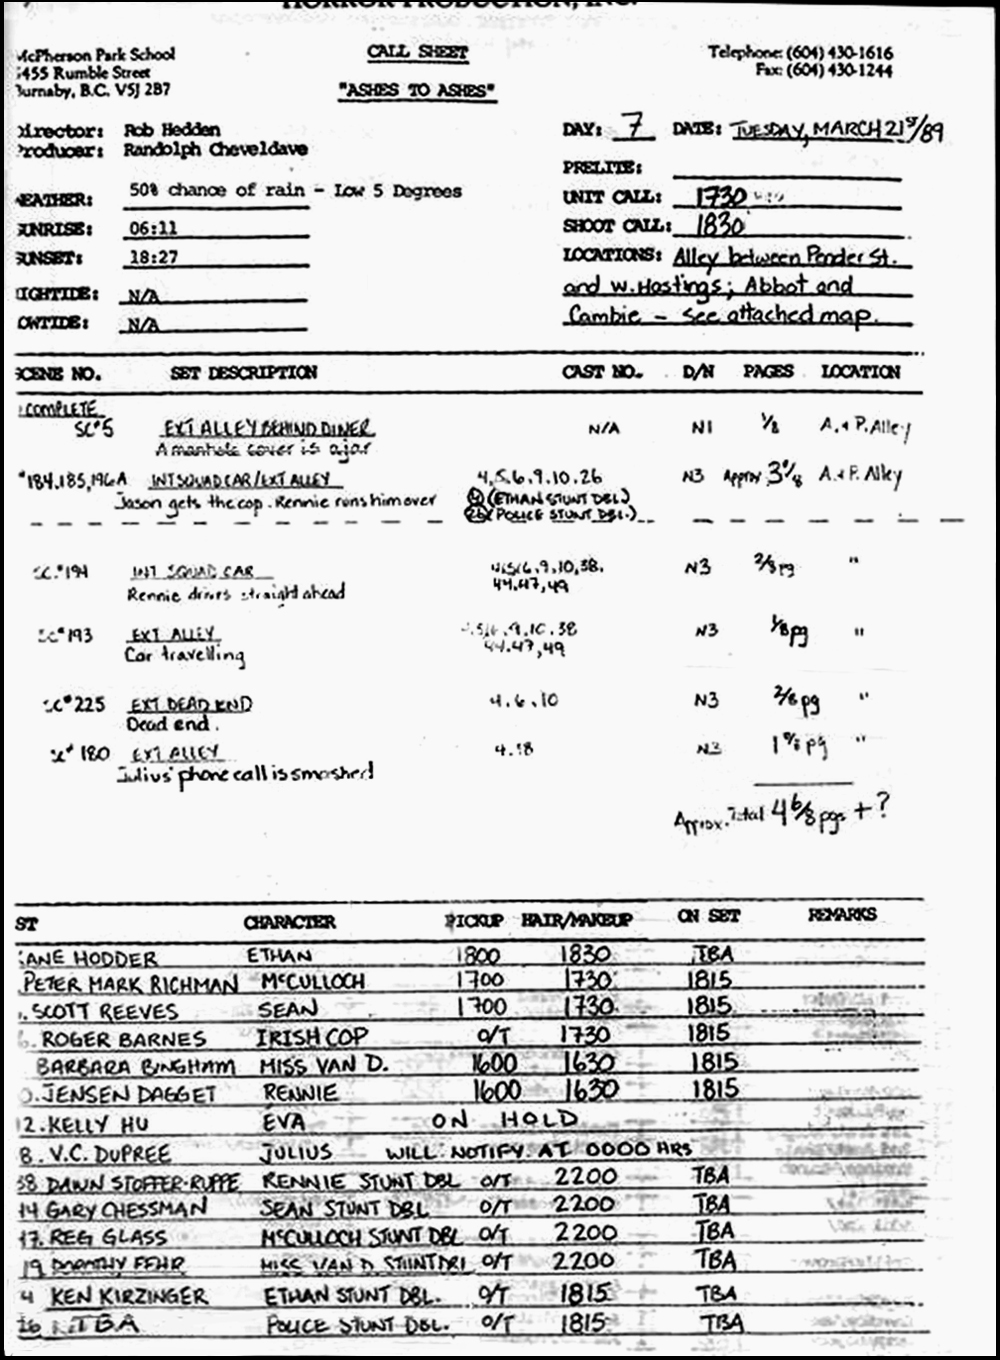 HORROR PRODUCTION, INC.
McPherson Park School
455 Rumble Street
Burnaby, B.C. V5J 2B7
CALL SHEET
"ASHES TO ASHES"
Telephone: (604) 430-1616
Fax: (604) 430-1244
Director: Rob Hedden
Producer: Randolph Cheveldave
DAY: 7 DATE: TUESDAY, MARCH 21st/89
PRELITE:
EATHER: 50% chance of rain - Low 5 Degrees
UNIT CALL: 1730
UNRISE: 06:11
SHOOT CALL: 1830
UNSET: 18:27
LOCATIONS: Alley between Pender St.
and W. Hastings; Abbot and
Cambie - See attached map.
IGHTIDE: N/A
OWTIDE: N/A
SCENE NO. SET DESCRIPTION CAST NO. D/N PAGES LOCATION
COMPLETE
SC#5 EXT ALLEY BEHIND DINER N/A N1 1/8 A. & P. Alley
A manhole cover is ajar
*184,185,196A INT SQUAD CAR/EXT ALLEY 4,5,6,9,10,26 N3 Approx 3 0/8 A. & P. Alley
Jason gets the cop. Rennie runs him over
(ETHAN STUNT DBL)
26 (POLICE STUNT DBL.)
SC.#194 INT SQUAD CAR 4,5,6,9,10,38, N3 2/8 pg "
Rennie drives straight ahead 44,47,49
SC#193 EXT ALLEY 4,5,6,9,10,38 N3 1/8 pg "
Car travelling 44,47,49
SC#225 EXT DEAD END 4,6,10 N3 2/8 pg "
Dead end.
SC# 180 EXT ALLEY 4,18 N3 1 0/8 pg "
Julius' phone call is smashed
Approx. Total 4 6/8 pgs + ?
ST CHARACTER PICKUP HAIR/MAKEUP ON SET REMARKS
ANE HODDER ETHAN 1800 1830 TBA
PETER MARK RICHMAN McCULLOCH 1700 1730 1815
SCOTT REEVES SEAN 1700 1730 1815
6. ROGER BARNES IRISH COP O/T 1730 1815
BARBARA BINGHAM MISS VAN D. 1600 1630 1815
0. JENSEN DAGGET RENNIE 1600 1630 1815
12. KELLY HU EVA ON HOLD
8. V.C. DUPREE JULIUS WILL NOTIFY AT 0000 HRS
38 DAWN STOFFER-RUPPE RENNIE STUNT DBL O/T 2200 TBA
44 GARY CHESSMAN SEAN STUNT DBL O/T 2200 TBA
47. REG GLASS McCULLOCH STUNT DBL O/T 2200 TBA
49 DOROTHY FEHR MISS VAN D STUNT DBL O/T 2200 TBA
4 KEN KIRZINGER ETHAN STUNT DBL. O/T 1815 TBA
26 TBA POLICE STUNT DBL. O/T 1815 TBA